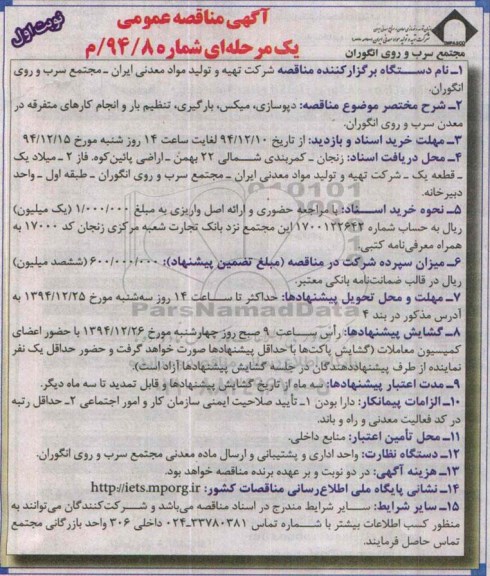 آگهی مناقصه عمومی
یک مرحله‌ای شماره ۹۴/۸/م
نوبت اول
مجتمع سرب و روی انگوران
۱ـ نام دستگاه برگزارکننده مناقصه شرکت تهیه و تولید مواد معدنی ایران ـ مجتمع سرب و روی
انگوران.
۲ـ شرح مختصر موضوع مناقصه: دپوسازی، میکس، بارگیری، تنظیم بار و انجام کارهای متفرقه در
معدن سرب و روی انگوران.
۳ـ مهلت خرید اسناد و بازدید: از تاریخ ۹۴/۱۲/۱۰ لغایت ساعت ۱۴ روز شنبه مورخ ۹۴/۱۲/۱۵
۴ـ محل دریافت اسناد: زنجان ـ کمربندی شمالی ۲۲ بهمن ـ اراضی پائین‌کوه، فاز ۲ ـ میلاد یک
ـ قطعه یک ـ شرکت تهیه و تولید مواد معدنی ایران ـ مجتمع سرب و روی انگوران ـ طبقه اول ـ واحد
دبیرخانه.
۵ـ نحوه خرید اسناد: با مراجعه حضوری و ارائه اصل واریزی به مبلغ ۱/۰۰۰/۰۰۰ (یک میلیون)
ریال به حساب شماره ۱۷۰۰۱۲۲۶۴۳ این مجتمع نزد بانک تجارت شعبه مرکزی زنجان کد ۱۷۰۰۰ به
همراه معرفی‌نامه کتبی.
۶ـ میزان سپرده شرکت در مناقصه (مبلغ تضمین پیشنهاد): ۶۰۰/۰۰۰/۰۰۰ (ششصد میلیون)
ریال در قالب ضمانت‌نامه بانکی معتبر.
۷ـ مهلت و محل تحویل پیشنهادها: حداکثر تا ساعت ۱۴ روز سه‌شنبه مورخ ۱۳۹۴/۱۲/۲۵ به
آدرس مذکور در بند ۴
۸ـ گشایش پیشنهادها: رأس ساعت ۹ صبح روز چهارشنبه مورخ ۱۳۹۴/۱۲/۲۶ با حضور اعضای
کمیسیون معاملات (گشایش پاکت‌ها با حداقل پیشنهادها صورت خواهد گرفت و حضور حداقل یک نفر
نماینده از طرف پیشنهاددهندگان در جلسه گشایش پیشنهادها آزاد است).
۹ـ مدت اعتبار پیشنهادها: سه ماه از تاریخ گشایش پیشنهادها و قابل تمدید تا سه ماه دیگر.
۱۰ـ الزامات پیمانکار: دارا بودن ۱ـ تأیید صلاحیت ایمنی سازمان کار و امور اجتماعی ۲ـ حداقل رتبه
در کد فعالیت معدنی و راه و باند.
۱۱ـ محل تأمین اعتبار: منابع داخلی.
۱۲ـ دستگاه نظارت: واحد اداری و پشتیبانی و ارسال ماده معدنی مجتمع سرب و روی انگوران.
۱۳ـ هزینه آگهی: در دو نوبت و بر عهده برنده مناقصه خواهد بود.
۱۴ـ نشانی پایگاه ملی اطلاع‌رسانی مناقصات کشور: http://iets.mporg.ir
۱۵ـ سایر شرایط: سایر شرایط مندرج در اسناد مناقصه می‌باشد و شرکت‌کنندگان می‌توانند به
منظور کسب اطلاعات بیشتر با شماره تماس ۳۳۷۸۰۳۸۱ـ۰۲۴ داخلی ۳۰۶ واحد بازرگانی مجتمع
تماس حاصل فرمایند.
ParsNamadData